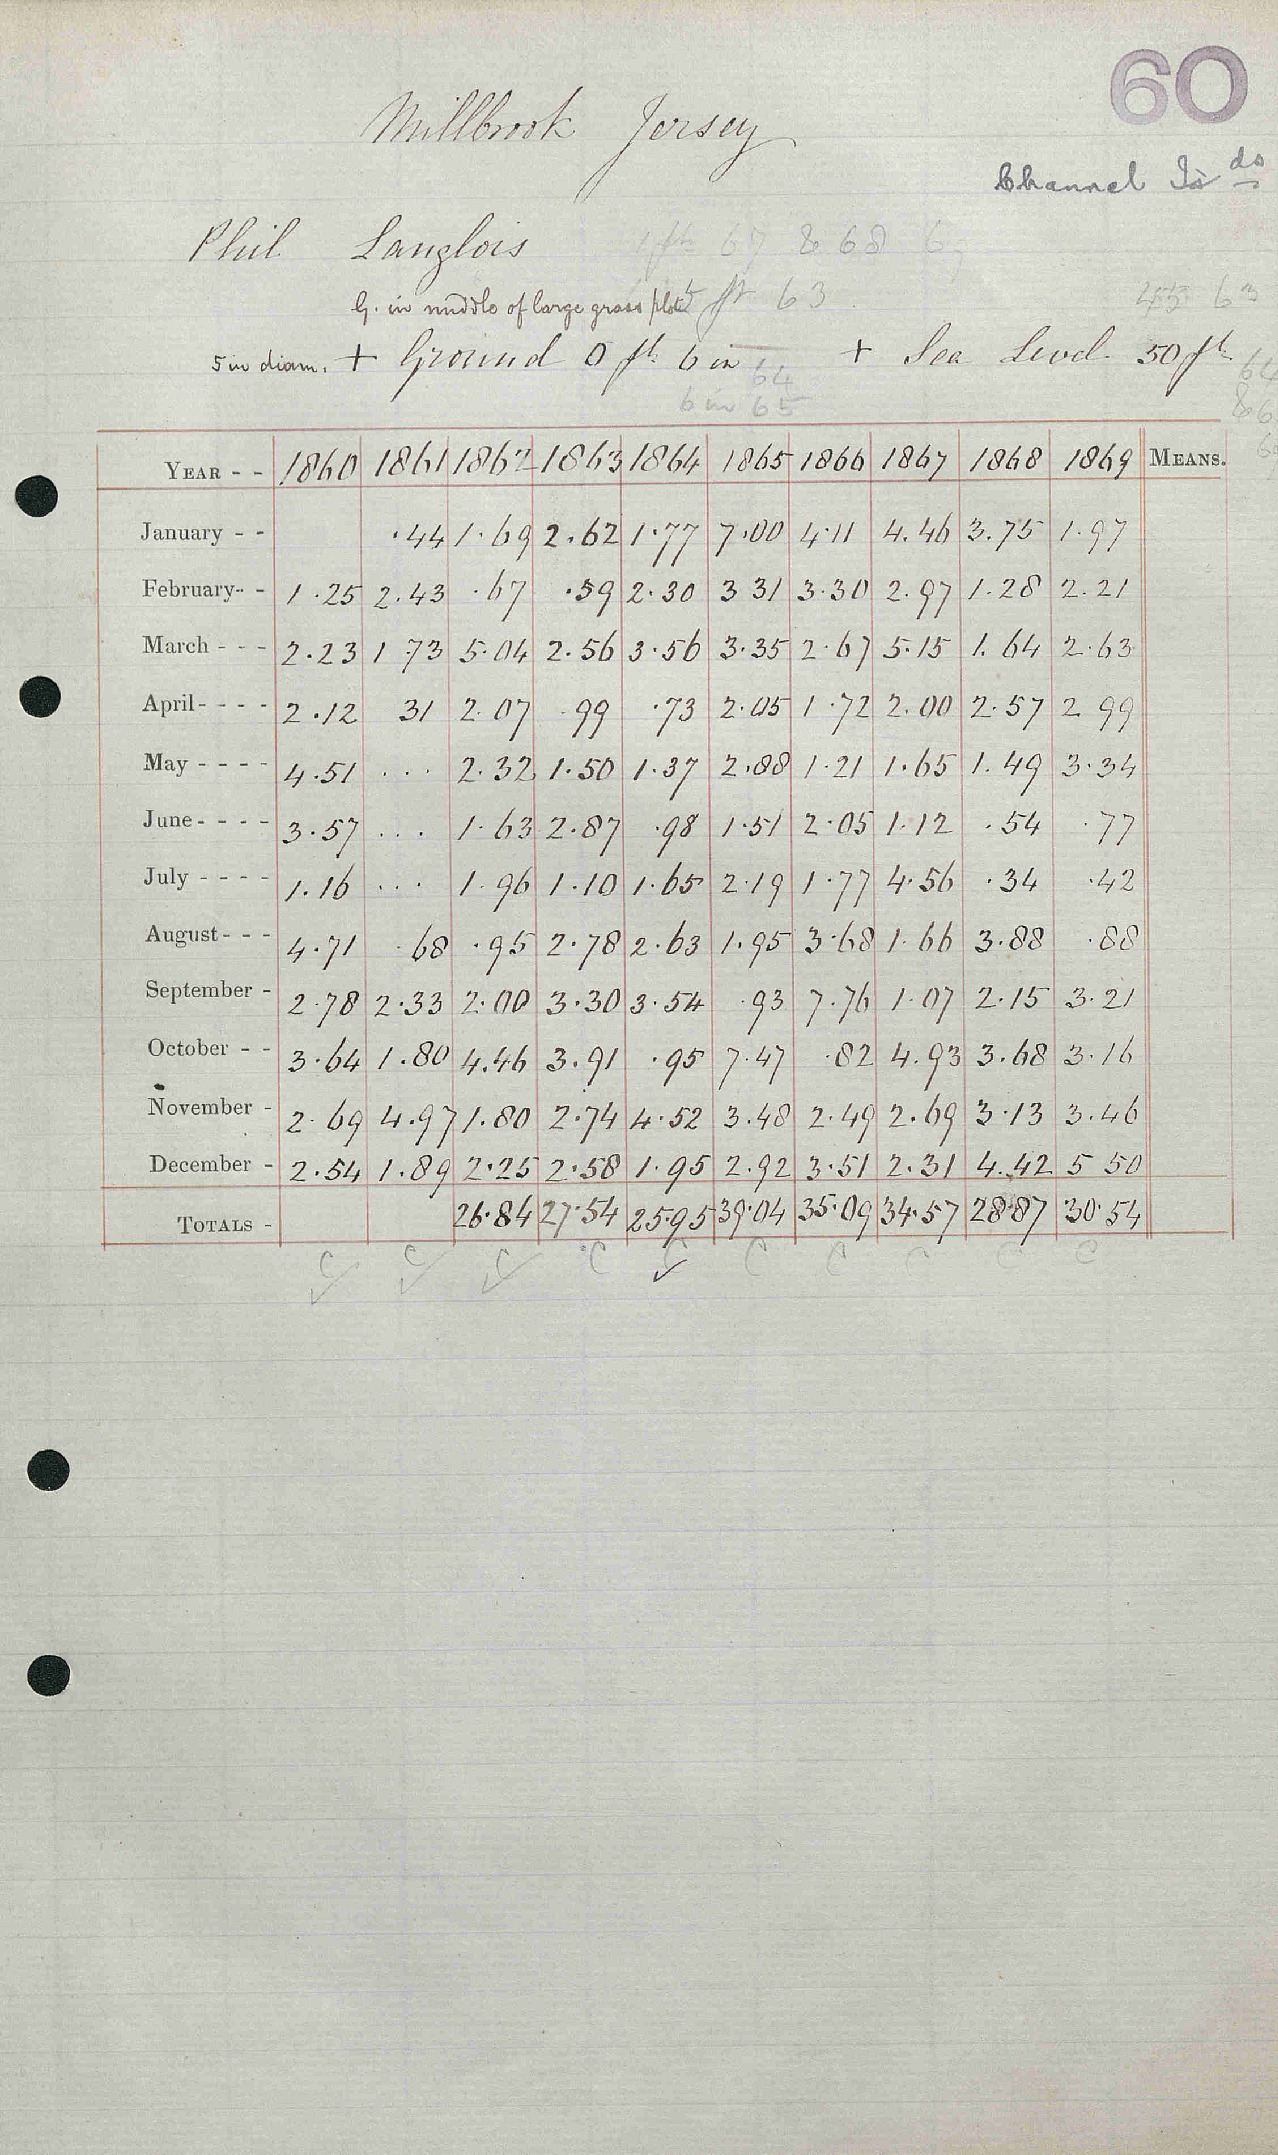 60
Millbrook Jersey
Channel Is ds
Phil Langlois 1 ft 67 & 68
G. in middle of large grass plot ft 63 63
5 in diam. + Ground 0 ft 6 in + Sea Level 50 ft
64 64
6 in 65
YEAR - - 1860 1861 1862 1863 1864 1865 1866 1867 1868 1869 MEANS.
January - - ·44 1·69 2.62 1·77 7·00 4·11 4.46 3.75 1·97
February- - 1·25 2.43 ·67 ·59 2·30 3 31 3·30 2·97 1·28 2·21
March - - - 2·23 1 73 5·04 2·56 3·56 3·35 2·67 5·15 1·64 2·63
April- - - - 2·12 31 2·07 ·99 ·73 2·05 1·72 2·00 2·57 2 99
May - - - - 4·51 ... 2·32 1·50 1·37 2·88 1·21 1·65 1·49 3·34
June- - - - 3·57 ... 1·63 2·87 ·98 1·51 2·05 1·12 ·54 ·77
July - - - - 1·16 ... 1·96 1·10 1·65 2·19 1·77 4·56 ·34 ·42
August- - - 4·71 ·68 ·95 2·78 2·63 1·95 3·68 1·66 3·88 ·88
September - 2·78 2·33 2·00 3·30 3·54 ·93 7·76 1·07 2·15 3·21
October - - 3·64 1·80 4·46 3·91 ·95 7·47 ·82 4·93 3·68 3·16
November - 2·69 4·97 1·80 2·74 4·52 3·48 2·49 2·69 3·13 3·46
December - 2·54 1·89 2·25 2·58 1·95 2·92 3·51 2·31 4.42 5 50
TOTALS - 26·84 27·54 25·95 39·04 35·09 34·57 28·87 30·54
C C C C C C C C C C